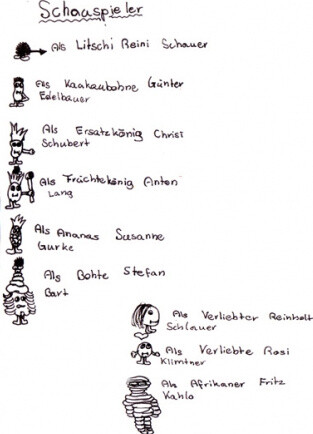 Schauspieler
Als Litschi Reini Schauer
Als Kaakaubohne Günter
Edelbauer
Als Ersatzkönig Christ
Schubert
Als Früchtekönig Anton
Lang
Als Ananas Susanne
Gurke
Als Bohte Stefan
Bart
Als Verliebter Reinholt
Schlauer
Als Verliebte Rosi
Klimtner
Als Afrikaner Fritz
Kahlo